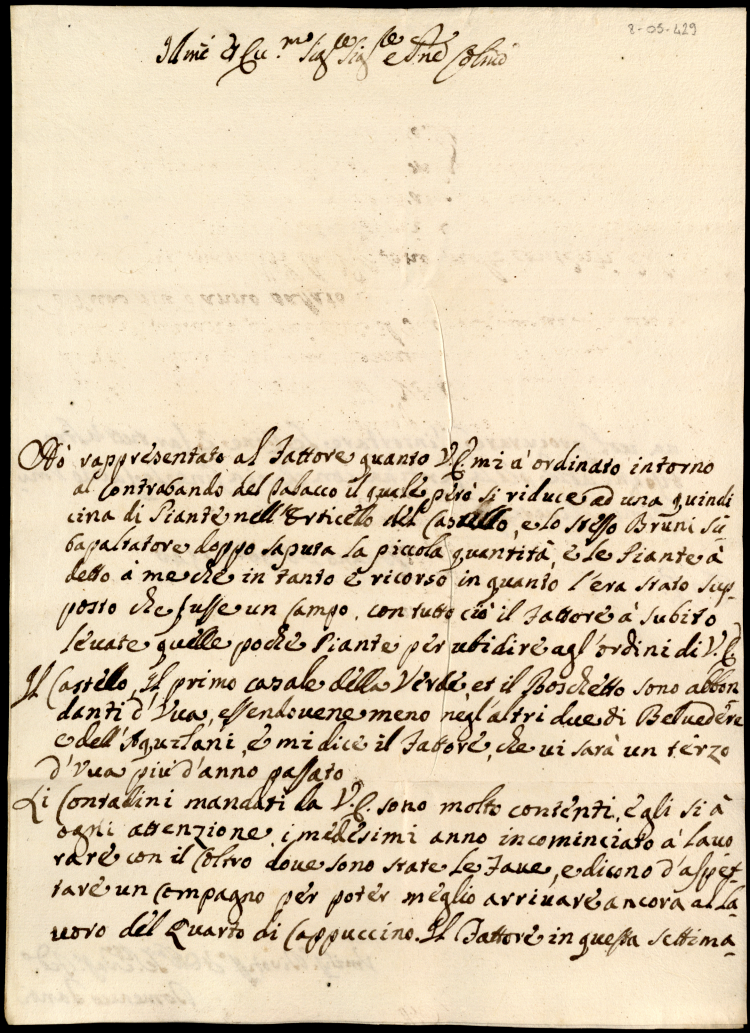 8-05-429
Illmo et Ecc.mo Sig.re Sig.re e Pne Colmo
Hò rappresentato al Fattore quanto V.E. mi a' ordinato intorno
al Contrabando del Tabacco il quale però si riduce ad una quindi
cina di Piante nell'Orticello del Castello, e lo stesso Bruni Su
bapaltatore doppo saputa la piccola quantità, è le Piante à
detto à me che in tanto è ricorso in quanto l'era stato sup-
posto che fusse un Campo, con tutto ciò il Fattore à subito
levate quelle poche Piante per ubidire agl'ordini di V.E.
Il Castello, Il primo casale della Verde, et il Boschetto sono abbon
danti d'Uva, essendovene meno negl'altri due di Belvedere
e dell'Aquilani, è mi dice il Fattore, che vi sarà un terzo
d'Uva più d'anno passato
Li Contadini mandati da V.E. sono molto contenti, è gli si à
ogni attenzione, i medesimi anno incominciato à lavo
rare con il Coltro dove sono state le Fave, e dicono d'aspet-
tare un Compagno per poter meglio arrivare ancora al la
voro del Quarto di Cappuccino. Il Fattore in questa settima-